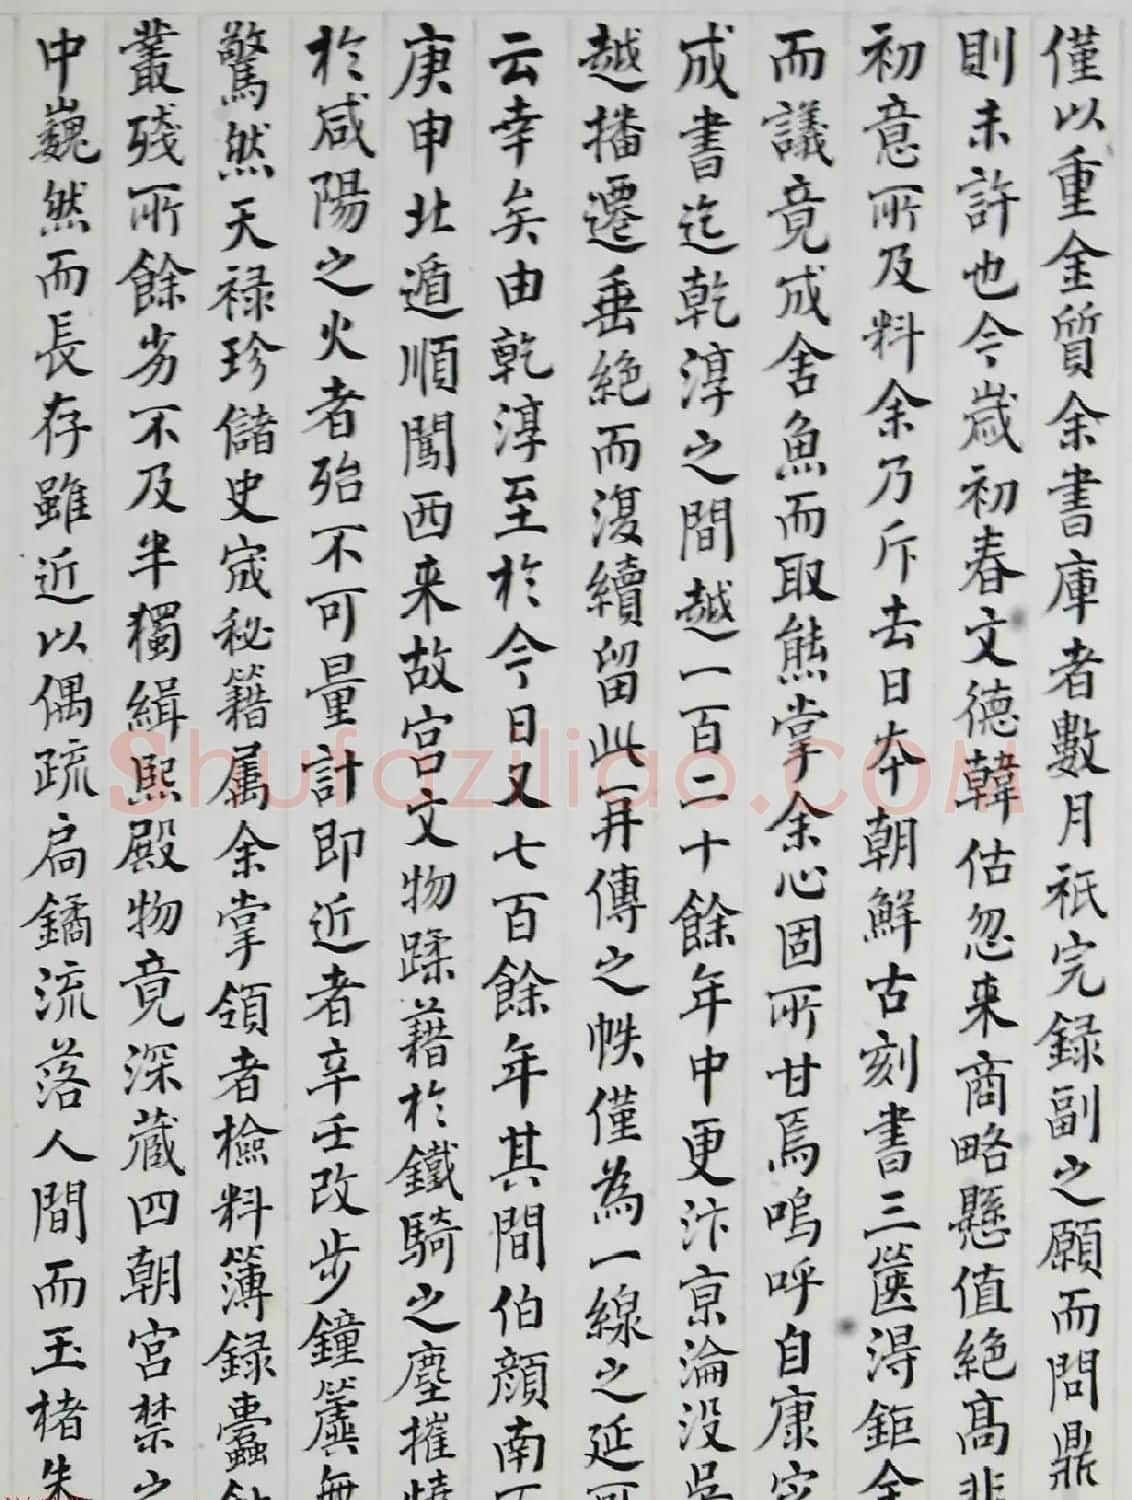 僅以重金質余書庫者數月祇完録副之願而問鼎
則未許也今歳初春文徳韓估忽来商略懸值絶高非
初意所及料余乃斥去日本朝鮮古刻書三篋得鉅金
而議竟成舍魚而取熊掌余心固所甘焉嗚呼自康定
成書迄乾淳之間越一百二十餘年中更汴京淪没吳
越播遷垂絶而復續留此一再傳之帙僅為一線之延可
云幸矣由乾淳至於今日又七百餘年其間伯顔南下
庚申北遁順闖西来故宮文物蹂藉於鐵騎之塵摧燒
於咸陽之火者殆不可量計即近者辛壬改步鐘簴無
驚然天禄珍儲史宬秘籍属余掌領者檢料簿録蠹蝕
叢殘所餘劣不及半獨緝熙殿物竟深藏四朝宮禁之
中巍然而長存雖近以偶疏扃鐍流落人間而玉楮朱
Shufaziliao.com